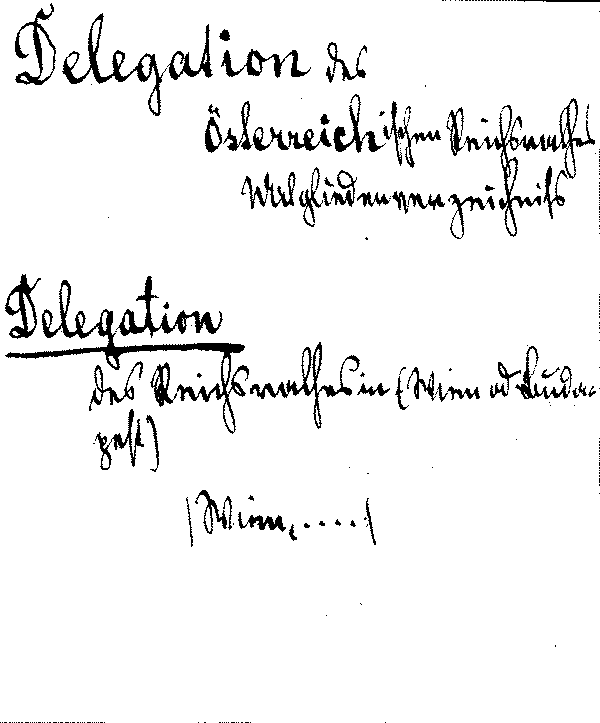 Delegation des
Österreichischen Reichsrathes
Mitgliederverzeichniß
Delegation
des Reichsrathes in (Wien od Buda-
pest)
|Wien, ....|